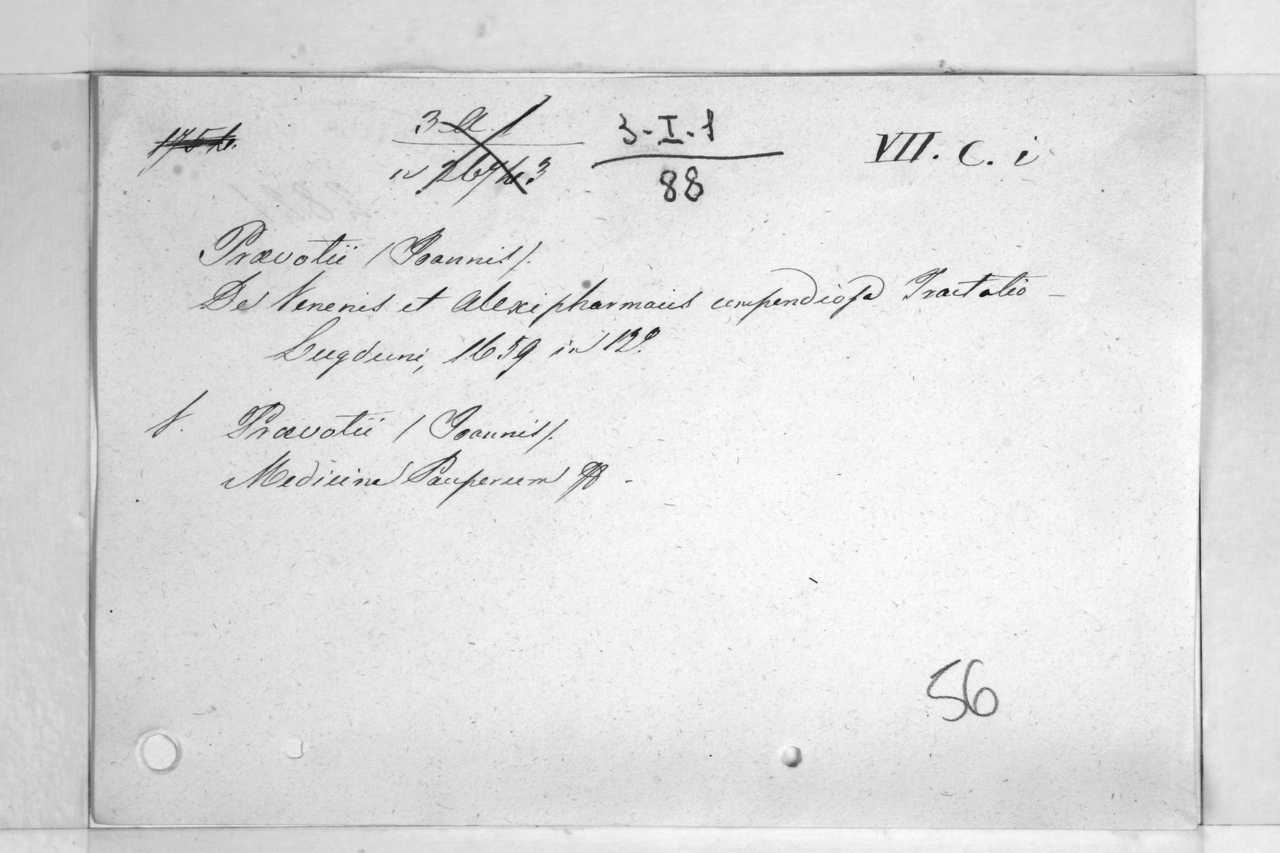 3-I-1
88
VII. C. i
Prævotii (Joannis).
De Venenis et Alexipharmacis compendiosa Tractatio –
Lugduni, 1659 in 12º.
V. Prævotii (Joannis).
Medicina Pauperum
56